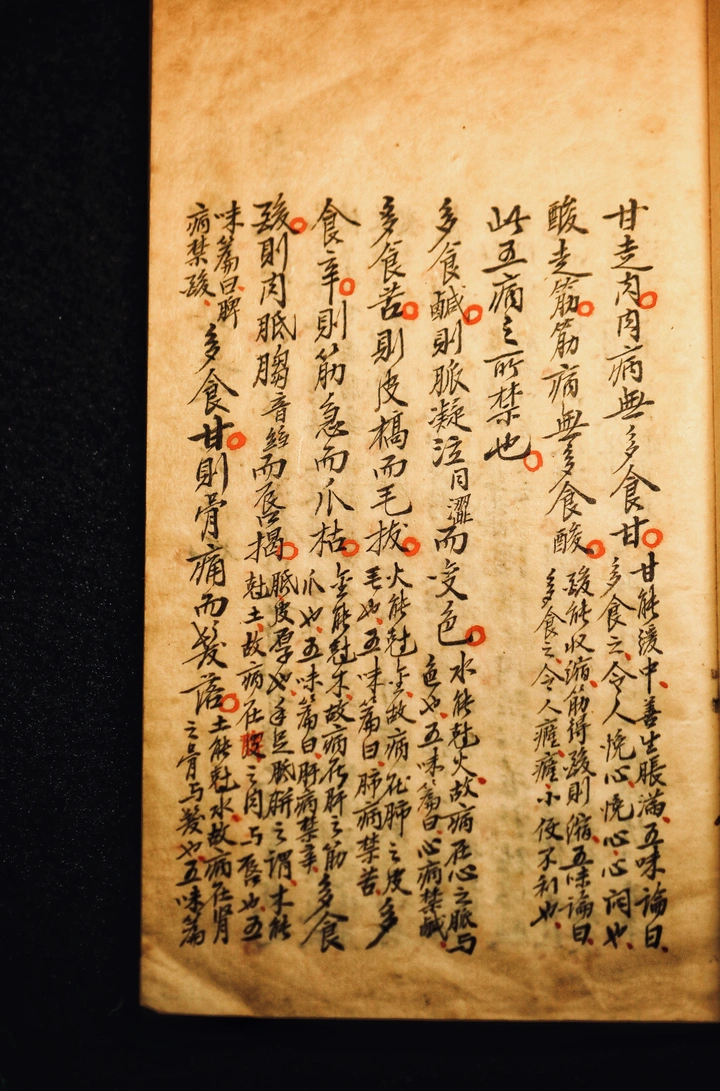 甘走肉肉病無多食甘甘能緩中善生脹滿五味論曰多食之令人悗心悗心心悶也
酸走筋筋病無多食酸酸能收縮筋得酸則縮五味論曰多食之令人癃癃小便不利也
此五病之所禁也
多食鹹則脈凝注同澀而变色水能尅火故病在心之脈与色也五味篇曰心病禁鹹
多食苦則皮槁而毛拔火能尅金故病在肺之皮毛也五味篇曰肺病禁苦多
食辛則筋急而爪枯金能尅木故病在肝之筋爪也五味篇曰肝病禁辛多食
酸則肉胝䐢音縐而唇揭胝皮厚也手足胝胼之謂木能尅土故病在脾之肉与唇也五
味篇曰脾病禁酸多食甘則骨痛而髮落土能尅水故病在腎之骨与髮也五味篇